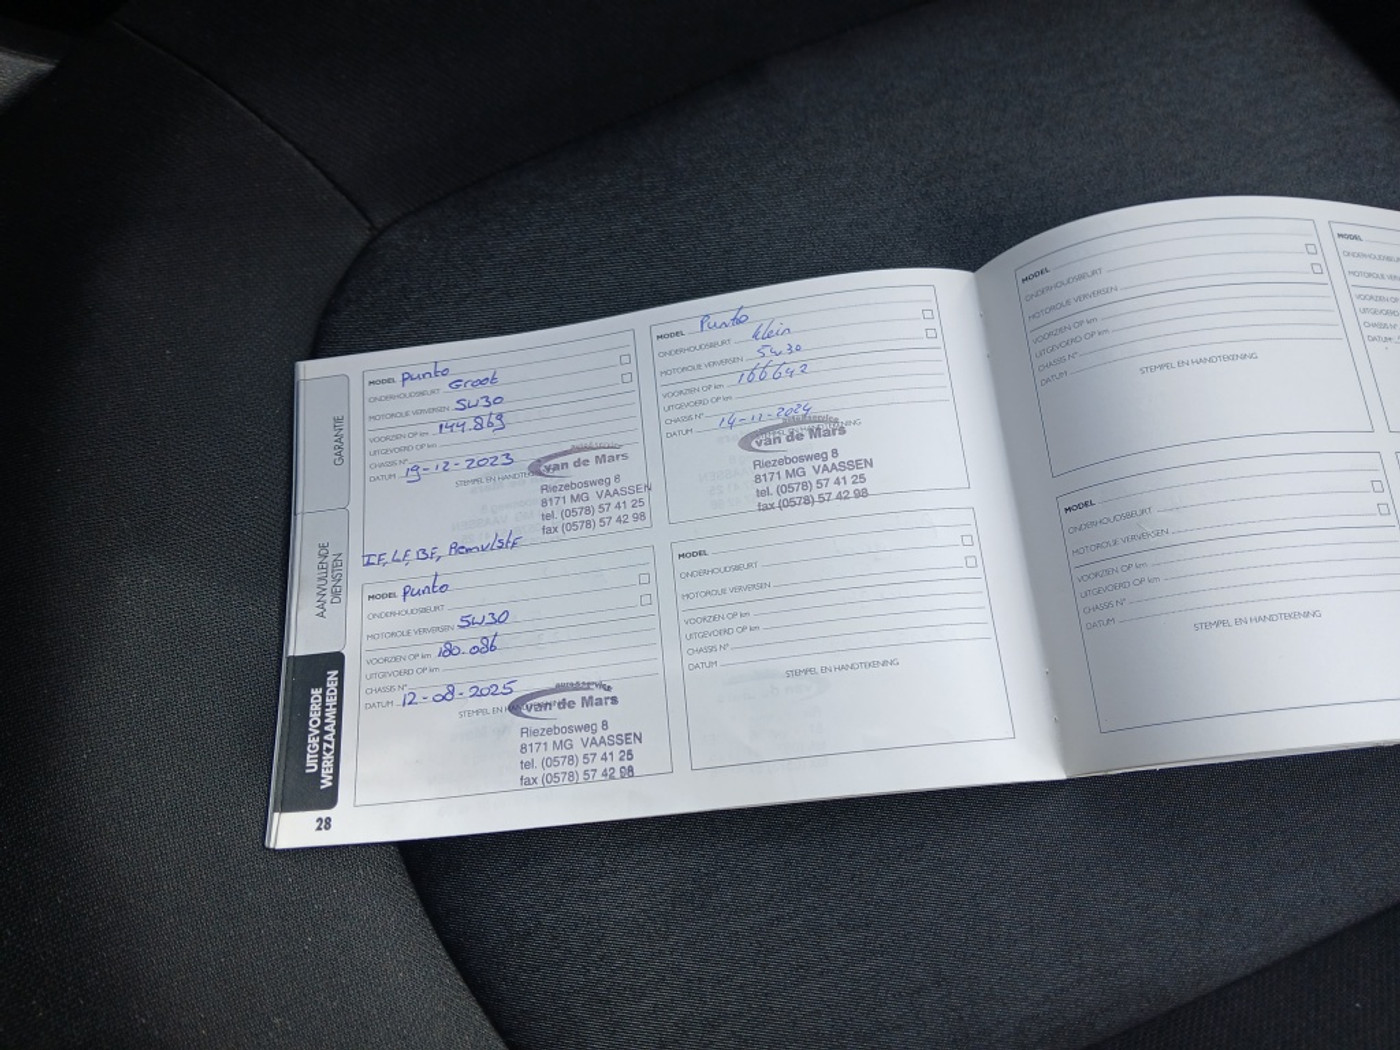 GARANTIE
AANVULLENDE
DIENSTEN
UITGEVOERDE
WERKZAAMHEDEN
28
MODEL Punto
ONDERHOUDSBEURT Groot
MOTOROLIE VERVERSEN 5W30
VOORZIEN OP km 144.869
UITGEVOERD OP km
CHASSIS N°
DATUM 19-12-2023
STEMPEL EN HANDTEK
autoservice
van de Mars
Riezebosweg 8
8171 MG VAASSEN
tel. (0578) 57 41 25
fax (0578) 57 42 98
IF, LF, BF, Remvlstf
MODEL Punto
ONDERHOUDSBEURT
MOTOROLIE VERVERSEN 5W30
VOORZIEN OP km 180.086
UITGEVOERD OP km
CHASSIS N°
DATUM 12-08-2025
STEMPEL EN HAN
autoservice
van de Mars
Riezebosweg 8
8171 MG VAASSEN
tel. (0578) 57 41 25
fax (0578) 57 42 98
MODEL Punto
ONDERHOUDSBEURT klein
MOTOROLIE VERVERSEN 5w30
VOORZIEN OP km 166642
UITGEVOERD OP km
CHASSIS N°
DATUM 14-11-2024
STEMPEL EN HANDTEKENING
autoservice
van de Mars
Riezebosweg 8
8171 MG VAASSEN
tel. (0578) 57 41 25
fax (0578) 57 42 98
MODEL
ONDERHOUDSBEURT
MOTOROLIE VERVERSEN
VOORZIEN OP km
UITGEVOERD OP km
CHASSIS N°
DATUM
STEMPEL EN HANDTEKENING
MODEL
ONDERHOUDSBEURT
MOTOROLIE VERVERSEN
VOORZIEN OP km
UITGEVOERD OP km
CHASSIS N°
DATUM
STEMPEL EN HANDTEKENING
MODEL
ONDERHOUDSBEURT
MOTOROLIE VERVERSEN
VOORZIEN OP km
UITGEVOERD OP km
CHASSIS N°
DATUM
STEMPEL EN HANDTEKENING
MODEL
ONDERHOUDSBEUR
MOTOROLIE VER
VOORZIEN OP
UITGEVOERD
CHASSIS N°
DATUM